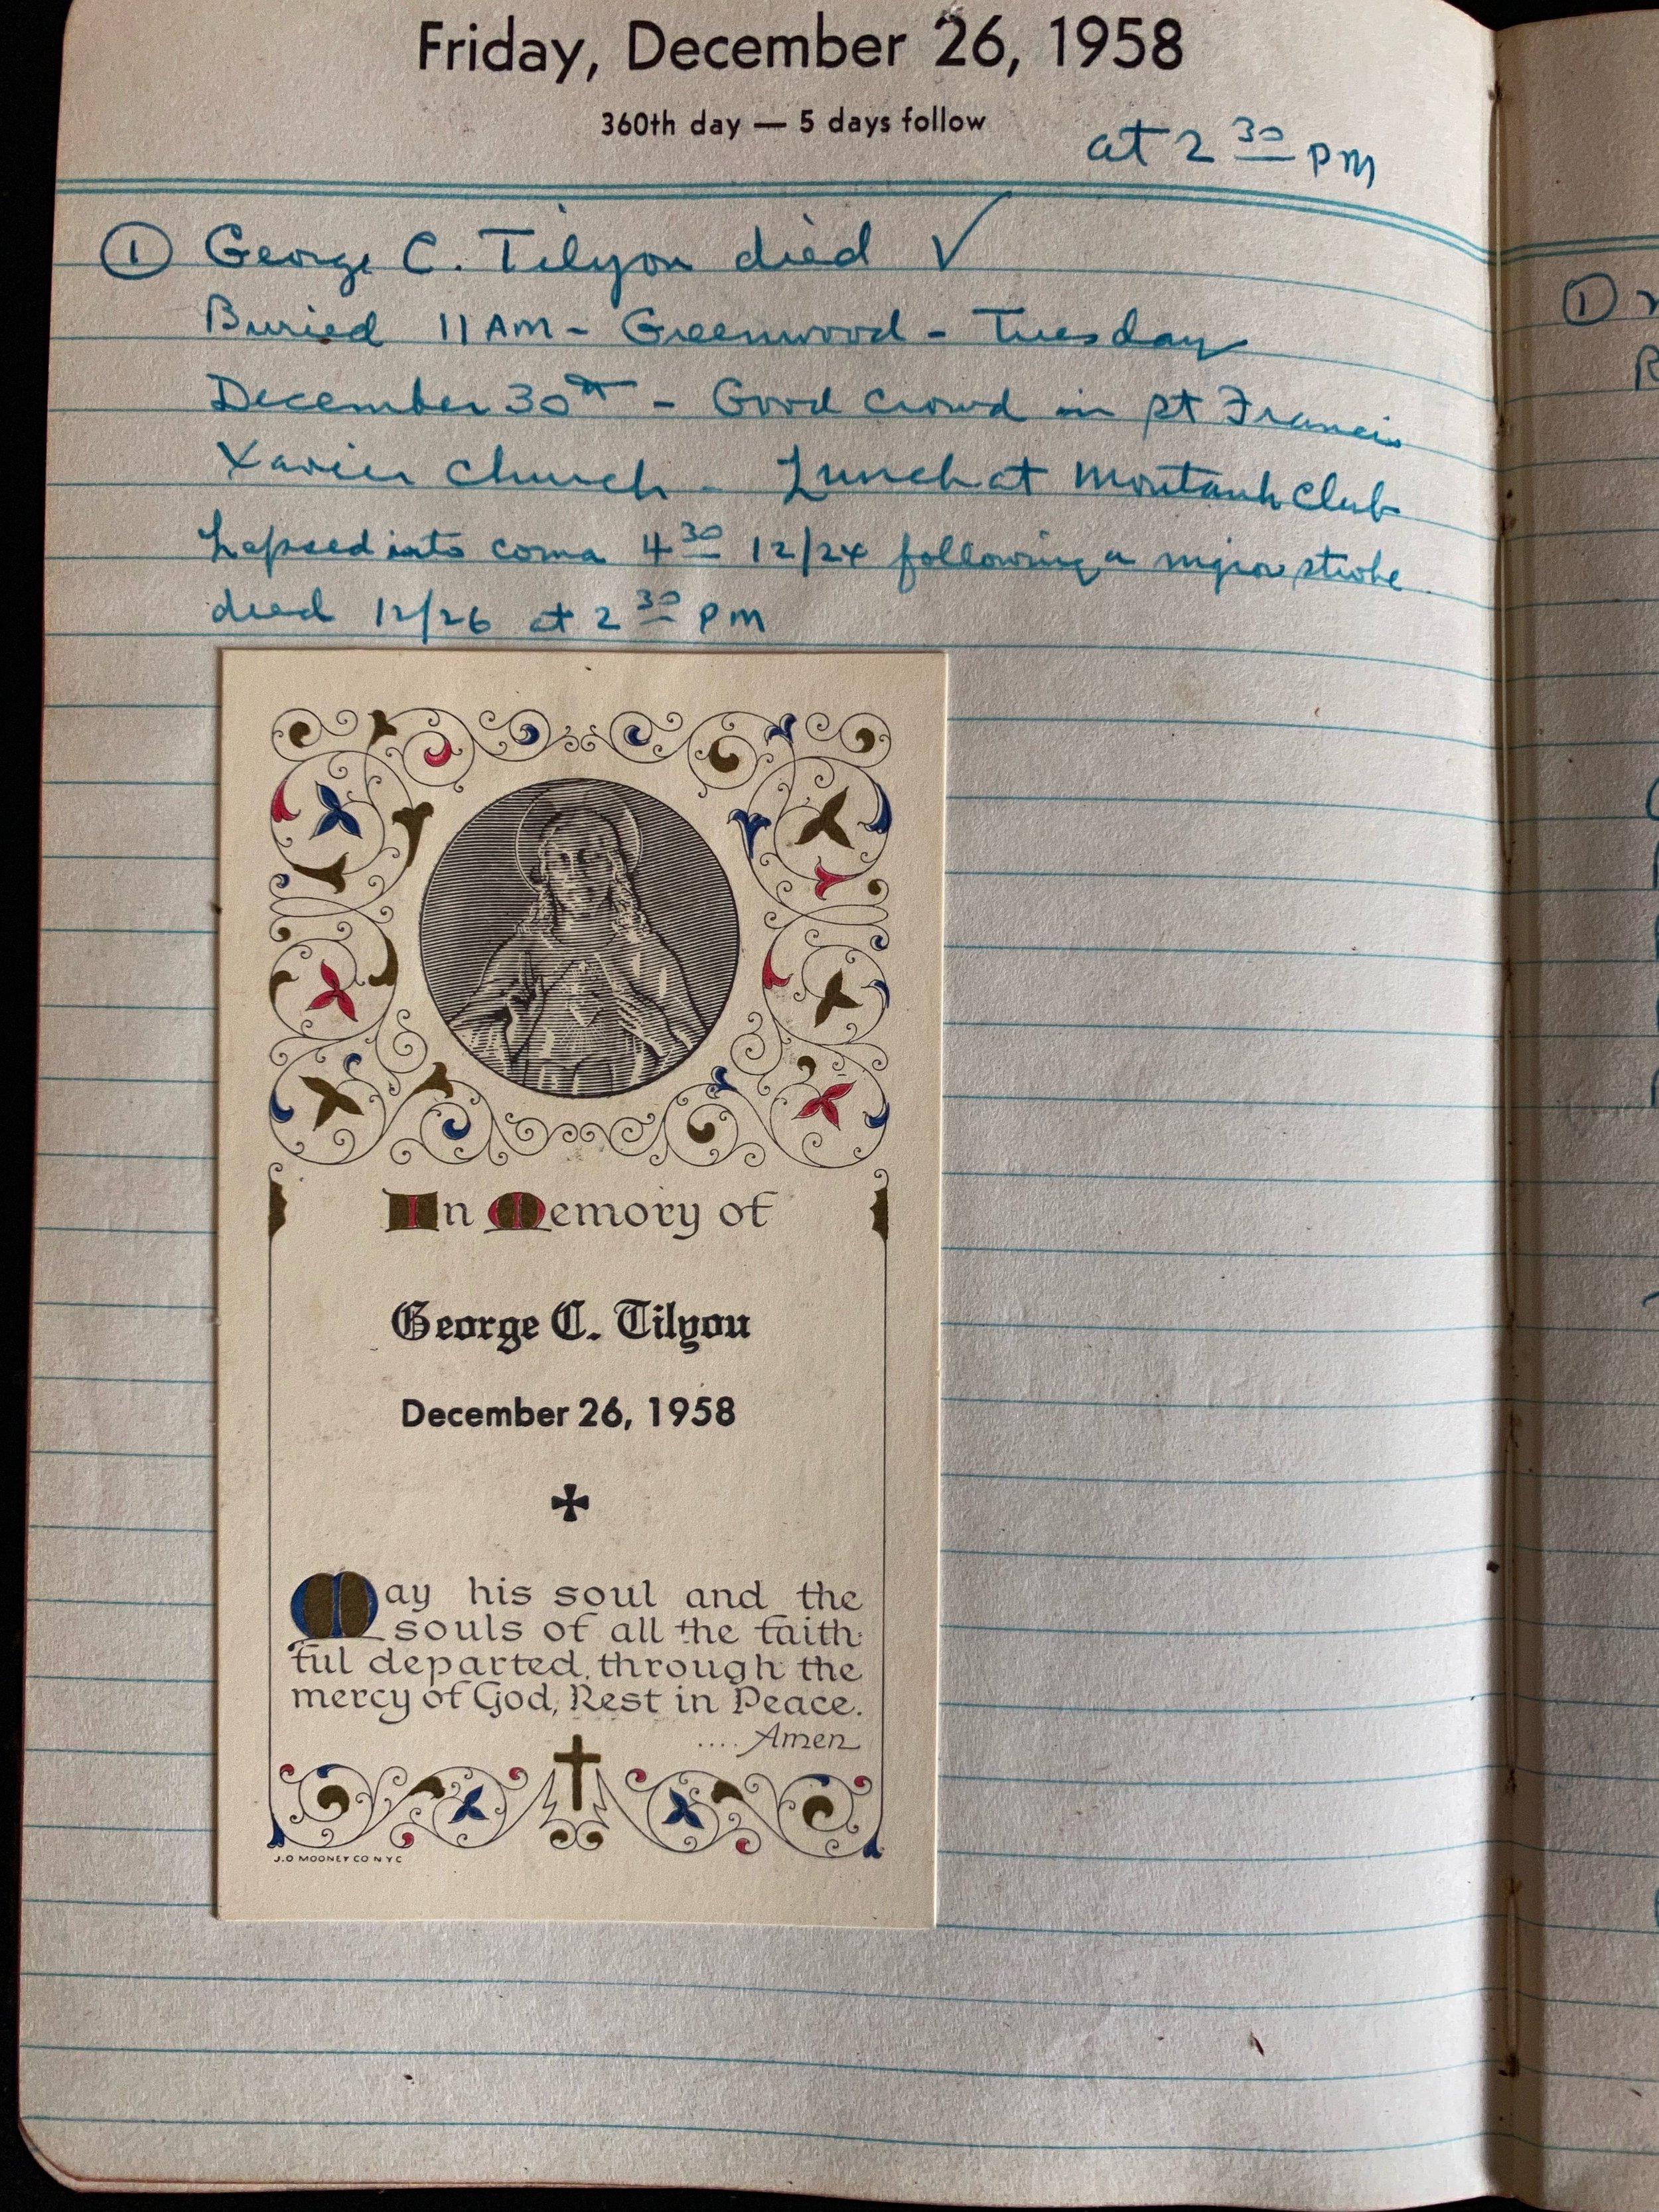 Friday, December 26, 1958
360th day — 5 days follow
at 2 30 PM
① George C. Tilyou died ✓
Buried 11 AM - Greenwood - Tuesday
December 30th - Good crowd in St Francis
Xavier Church - Lunch at Montauk Club
Lapsed into coma 4 30 12/24 following a major stroke
died 12/26 at 2 30 PM
In Memory of
George C. Tilyou
December 26, 1958
✠
May his soul and the
souls of all the faith-
ful departed, through the
mercy of God, Rest in Peace.
.... Amen
J.O MOONEY CO N Y C
①